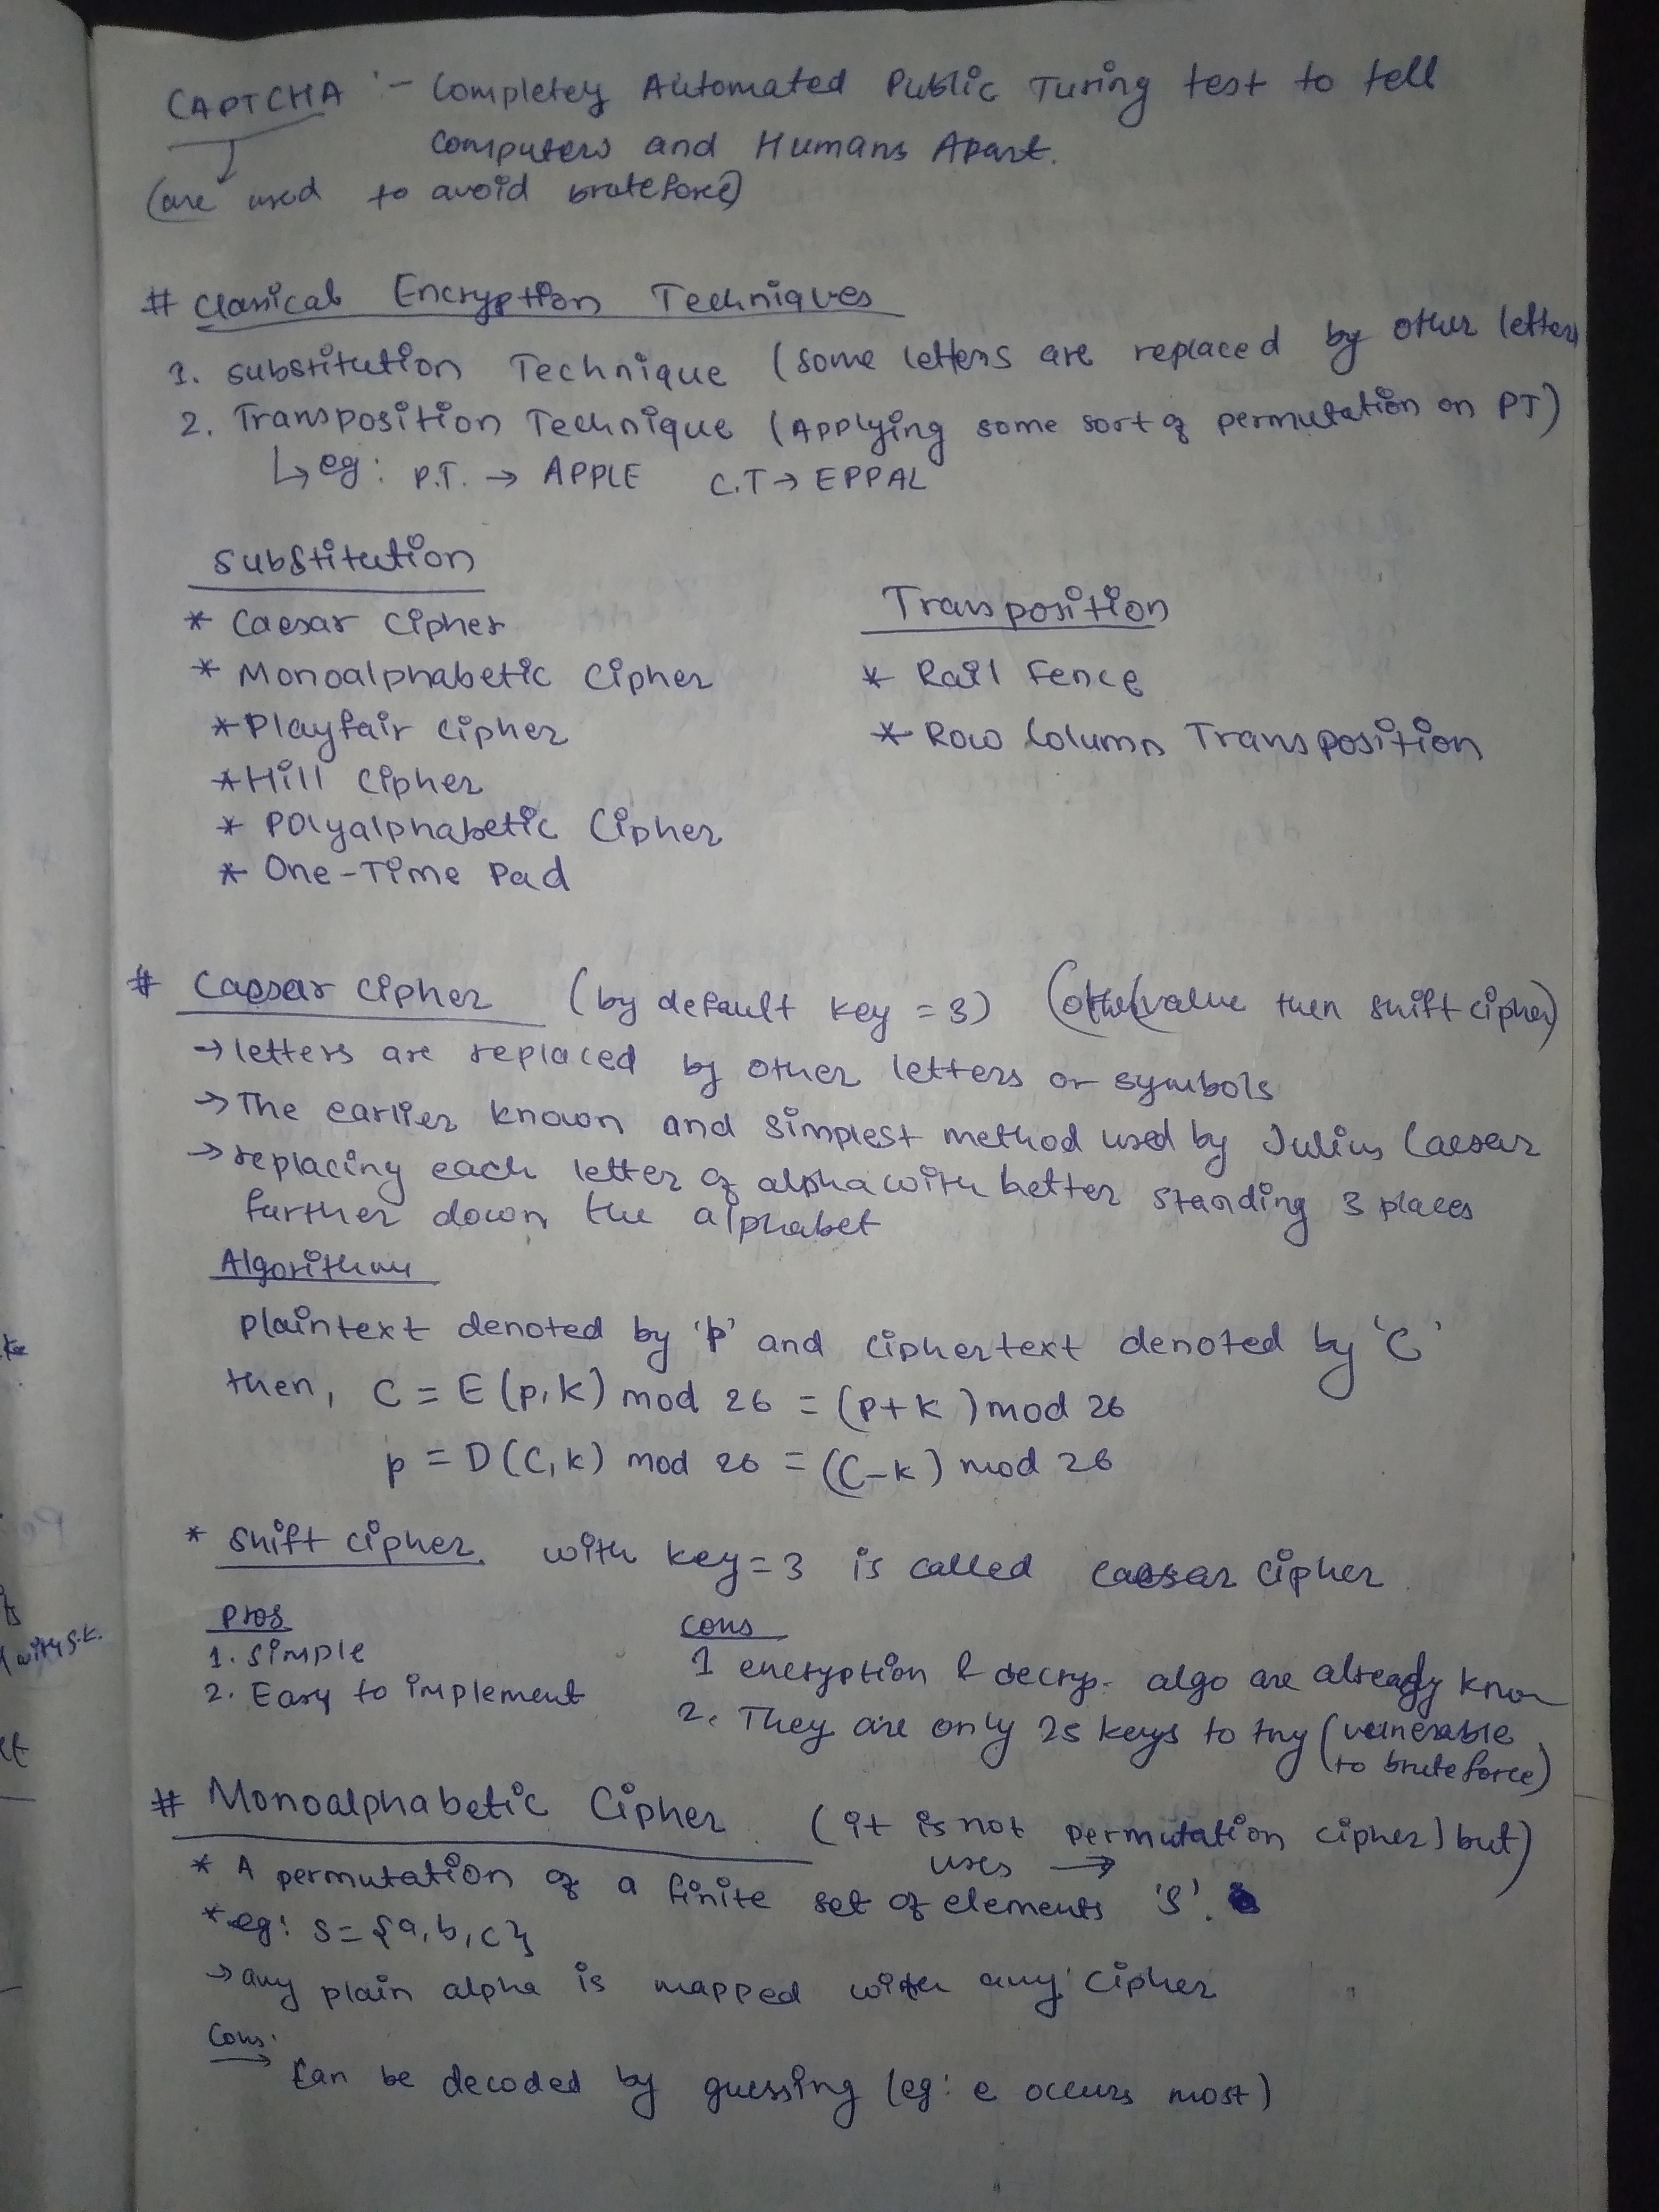 CAPTCHA :- Completey Automated Public Turing test to tell
Computers and Humans Apart.
(are used to avoid bruteforce)
# Classical Encryption Techniques
1. substitution Technique (some letters are replaced by other letters
2. Transposition Technique (Applying some sort of permutation on PT)
↳ eg: P.T. → APPLE C.T → EPPAL
Substitution
* Caesar Cipher
* Monoalphabetic Cipher
* Playfair Cipher
* Hill Cipher
* Polyalphabetic Cipher
* One-Time Pad
Transposition
* Rail Fence
* Row Column Transposition
# Caesar Cipher (by default key = 3) (other value then shift cipher)
→ letters are replaced by other letters or symbols
→ The earlier known and simplest method used by Julius Caesar
→ replacing each letter of alpha with better standing 3 places
further down the alphabet
Algorithm
plaintext denoted by 'p' and ciphertext denoted by 'C'
then, C = E(p,k) mod 26 = (p+k) mod 26
p = D(C,k) mod 26 = (C-k) mod 26
* Shift cipher with key=3 is called caesar cipher
Pros
1. Simple
2. Easy to implement
Cons
1 encryption & decryp. algo are already know
2. They are only 25 keys to try (vulnerable
to brute force)
# Monoalphabetic Cipher (it is not permutation cipher) but)
uses →
* A permutation of a finite set of elements 'S'.
* eg: S={a,b,c}
→ any plain alpha is mapped with any cipher
Cons.
→ Can be decoded by guessing (eg: e occurs most)